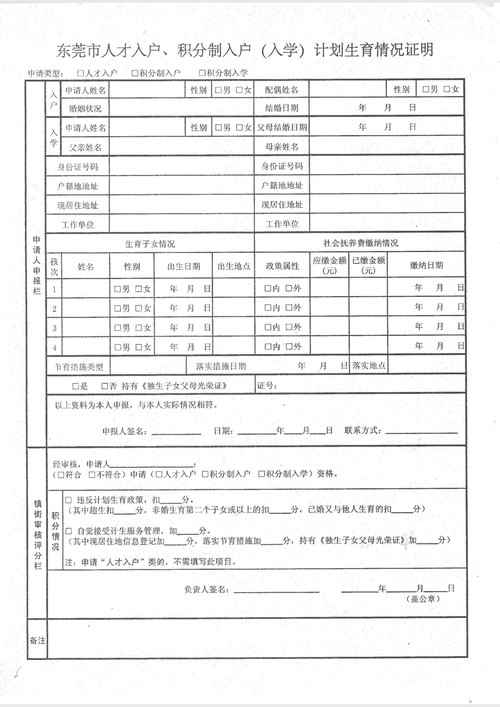 东莞市人才入户、积分制入户（入学）计划生育情况证明
申请类型： □人才入户 □积分制入户 □积分制入学
申请人申报栏
入户 申请人姓名 性别 □男 □女 配偶姓名 性别 □男 □女
婚姻状况 结婚日期 年 月 日
入学 申请人姓名 性别 □男 □女 父母结婚日期 年 月 日
父亲姓名 母亲姓名
身份证号码 身份证号码
户籍地地址 户籍地地址
现居住地址 现居住地址
工作单位 工作单位
生育子女情况 社会抚养费缴纳情况
孩次 姓名 性别 出生日期 出生地点 政策属性 应缴金额(元) 已缴金额(元) 缴纳日期
1 □男 □女 年 月 日 □内 □外 年 月 日
2 □男 □女 年 月 日 □内 □外 年 月 日
3 □男 □女 年 月 日 □内 □外 年 月 日
4 □男 □女 年 月 日 □内 □外 年 月 日
节育措施类型 落实措施日期 年 月 日 落实地点
□是 □否 持有《独生子女父母光荣证》 证号：
以上资料为本人申报，与本人实际情况相符。
申报人签名：______ 日期：______年____月____日 联系方式：______
镇街审核评分栏
经审核，申请人______；
(□符合 □不符合)申请（□人才入户 □积分制入户 □积分制入学）资格。
积分情况
□ 违反计划生育政策，扣____分。
(其中超生扣____分，非婚生育第二个子女或以上的扣____分，已婚又与他人生育的扣____分)
□ 自觉接受计生服务管理，加____分。
(其中现居住地信息登记加____分，落实节育措施加____分，持有《独生子女父母光荣证》加____分)
注：申请“人才入户”类的，不需填写此项目。
负责人签名：______ ______年____月____日
(盖公章)
备注